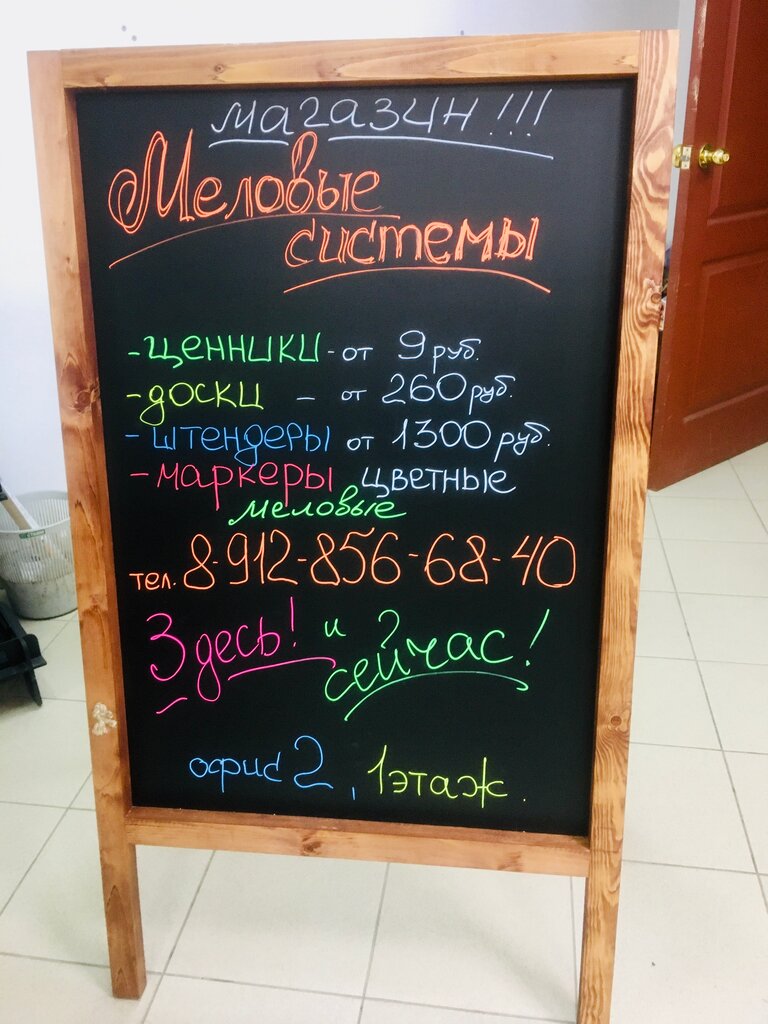 магазин!!!
Меловые
системы
-ценники - от 9 руб.
-доски - от 260 руб.
-штендеры от 1300 руб.
-маркеры цветные
меловые
тел. 8-912-856-68-40
Здесь! и
сейчас!
офис 2, 1 этаж.